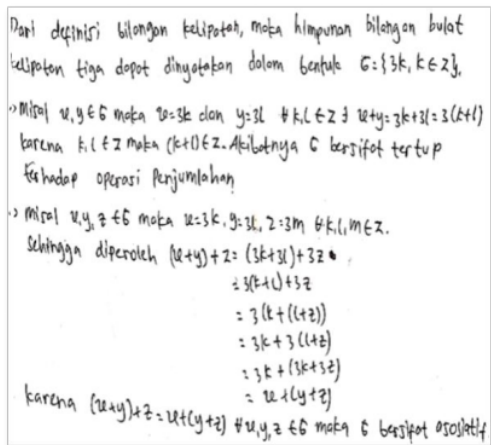 Dari definisi bilangan kelipatan, maka himpunan bilangan bulat
kelipatan tiga dapat dinyatakan dalam bentuk G:{3k, k∈Z}.
•> Misal x,y∈G maka x=3k dan y=3l ∀k,l∈Z ∃ x+y=3k+3l=3(k+l)
karena k,l∈Z maka (k+l)∈Z. Akibatnya G bersifat tertutup
terhadap operasi Penjumlahan
•> misal x,y,z∈G maka x=3k, y=3l, z=3m ∀k,l,m∈Z.
Sehingga diperoleh (x+y)+z = (3k+3l)+3z
= 3(k+l)+3z
= 3(k+(l+z))
= 3k+3(l+z)
= 3k+(3k+3z)
= x+(y+z)
karena (x+y)+z=x+(y+z) ∀x,y,z∈G maka G bersifat asosiatif